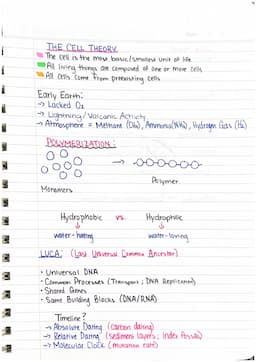 THE CELL THEORY
The cell is the most basic/smallest unit of life
All living things are composed of one or more cells
All cells come from preexisting cells
Early Earth:
→ Lacked O₂
→ Lightning/Volcanic Activity
→ Atmosphere = Methane (CH₄), Ammonia (NH₃), Hydrogen Gas (H₂)
POLYMERIZATION:
Monomers
Polymer
Hydrophobic vs. Hydrophilic
water-hating water-loving
LUCA: (Last Universal Common Ancestor)
• Universal DNA
• Common Processes (Transport; DNA Replication)
• Shared Genes
• Same Building Blocks (DNA/RNA)
Timeline?
→ Absolute Dating (carbon dating)
→ Relative Dating (sediment layers; index fossils)
→ Molecular Clock (mutation rate)